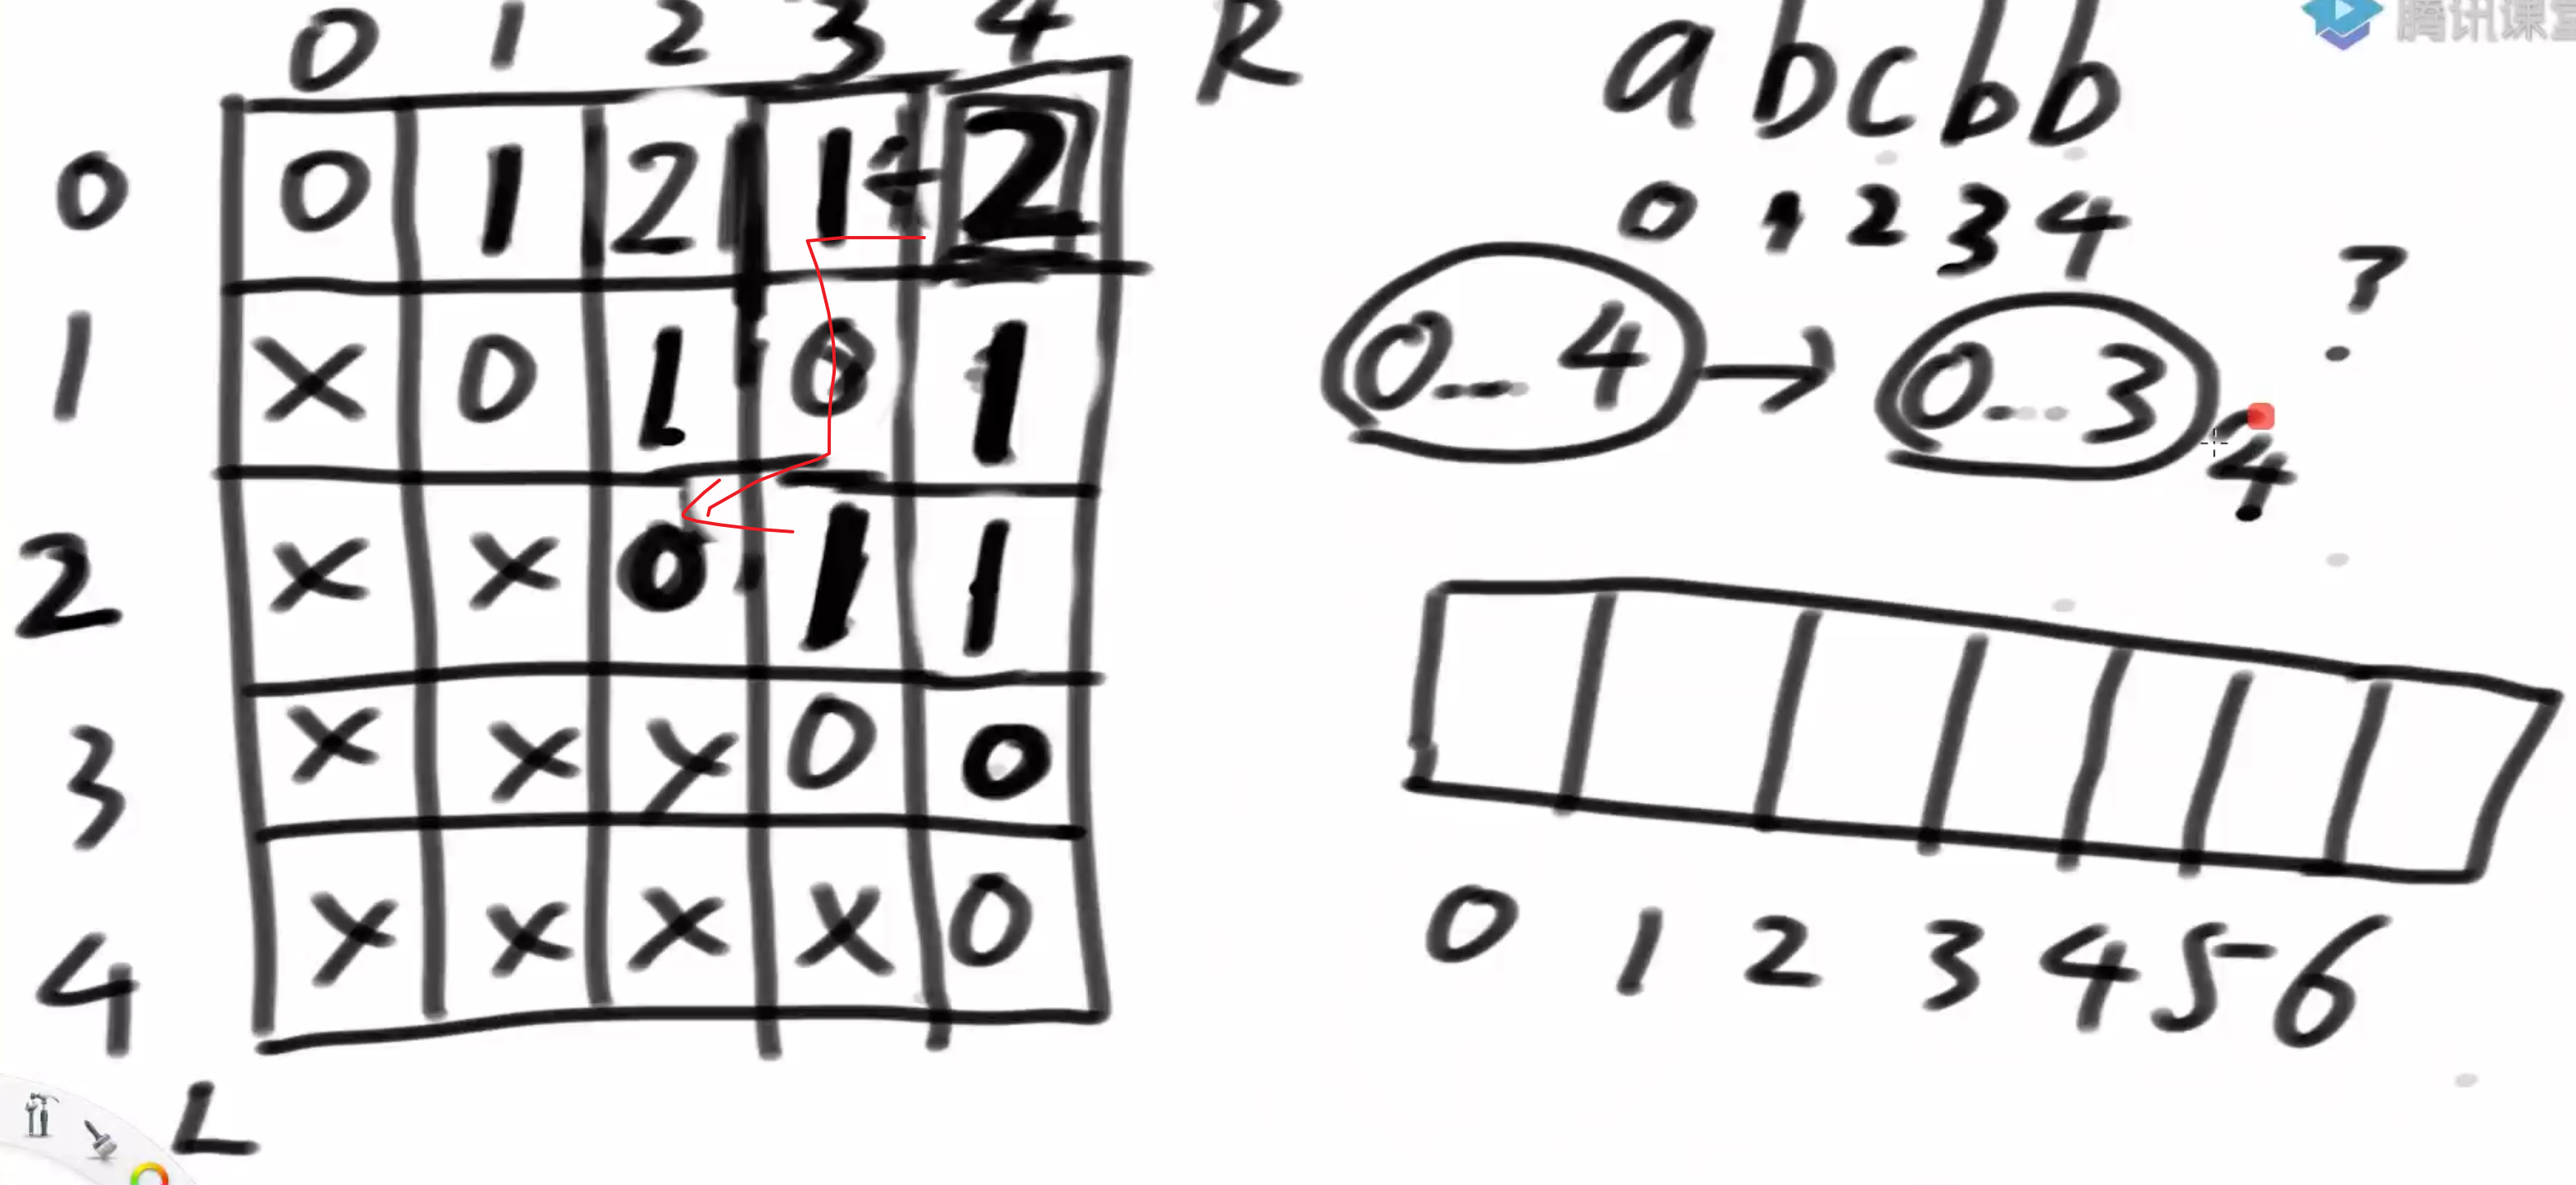 腾讯课堂
0 1 2 3 4 R
0 0 1 2 1 2
1 X 0 1 0 1
2 X X 0 1 1
3 X X X 0 0
4 X X X X 0
L
abcbb
0 1 2 3 4
0...4 → 0...3 4 ?
0 1 2 3 4 5 6